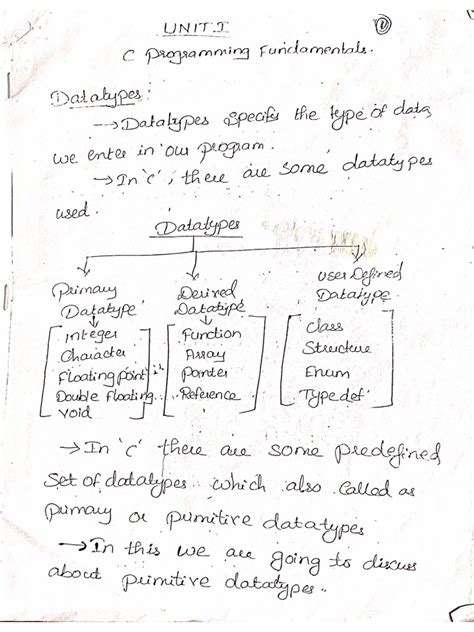 UNIT-I
①
C Programming Fundamentals.
Datatypes:
→Datatypes specify the type of data
we enter in our program.
→In 'c', there are some datatypes
used.
Datatypes
Primary Datatype
Integer
Character
Floating point
Double floating
Void
Derived Datatype
Function
Array
Pointer
Reference
User Defined Datatype
Class
Structure
Enum
Typedef
→In 'c' there are some predefined
set of datatypes which also called as
primary or primitive datatypes
→In this we are going to discuss
about primitive datatypes.